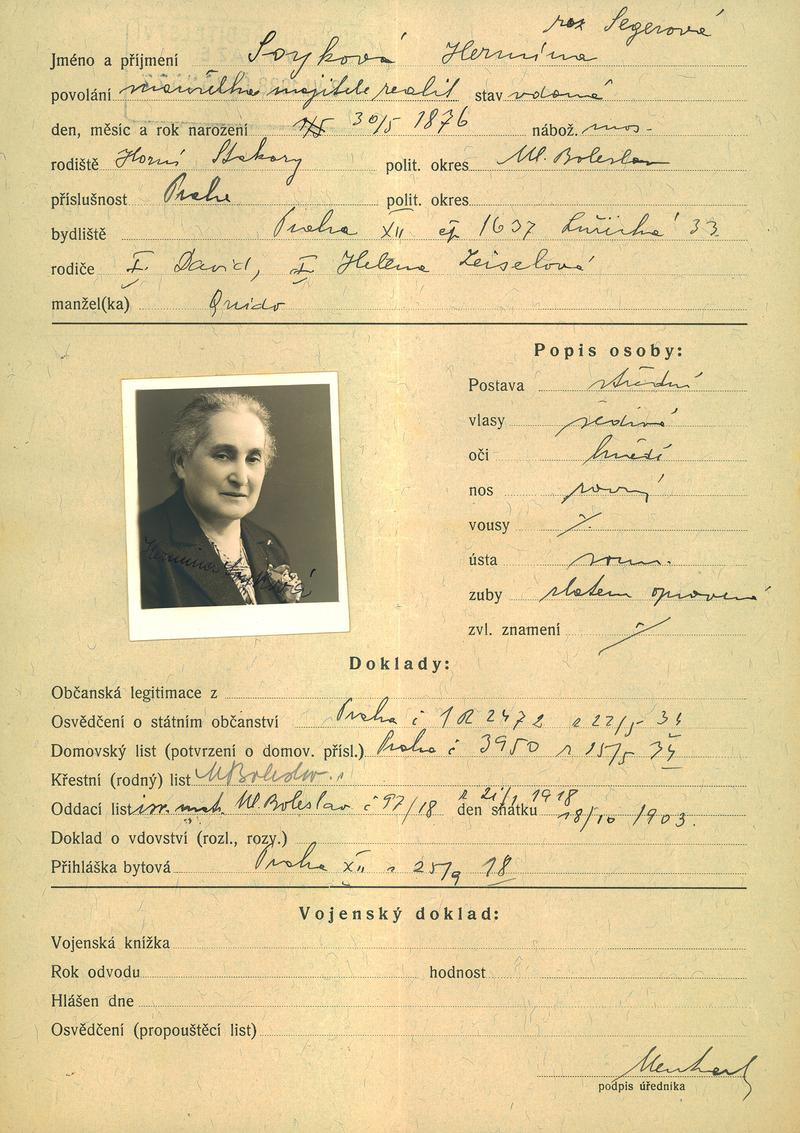 roz Segerová
Jméno a příjmení Soyková Hermína
povolání majitele realit stav vdova
den, měsíc a rok narození 30/5 1876 nábož. mos.
rodiště Horní Stakory polit. okres Ml. Boleslav
příslušnost Praha polit. okres
bydliště Praha XII čp 1637 33
rodiče I. David, I. Helena Zeiselová
manžel(ka) Quido
Popis osoby:
Postava střední
vlasy šedivé
oči hnědé
nos rovný
vousy ·/.
ústa roun.
zuby zlatem opravené
zvl. znamení /
Hermina Soyková
Doklady:
Občanská legitimace z
Osvědčení o státním občanství Praha č 1R 2472 z 22/5 34
Domovský list (potvrzení o domov. přísl.) Praha č 3950 z 15/5 34
Křestní (rodný) list M Boleslav
Oddací list isr. mat. Ml. Boleslav č 97/18 z 21/1 1918 den sňatku 18/10 1903.
Doklad o vdovství (rozl., rozy.)
Přihláška bytová Praha XII z 25/9 18
Vojenský doklad:
Vojenská knížka
Rok odvodu hodnost
Hlášen dne
Osvědčení (propouštěcí list)
podpis úředníka